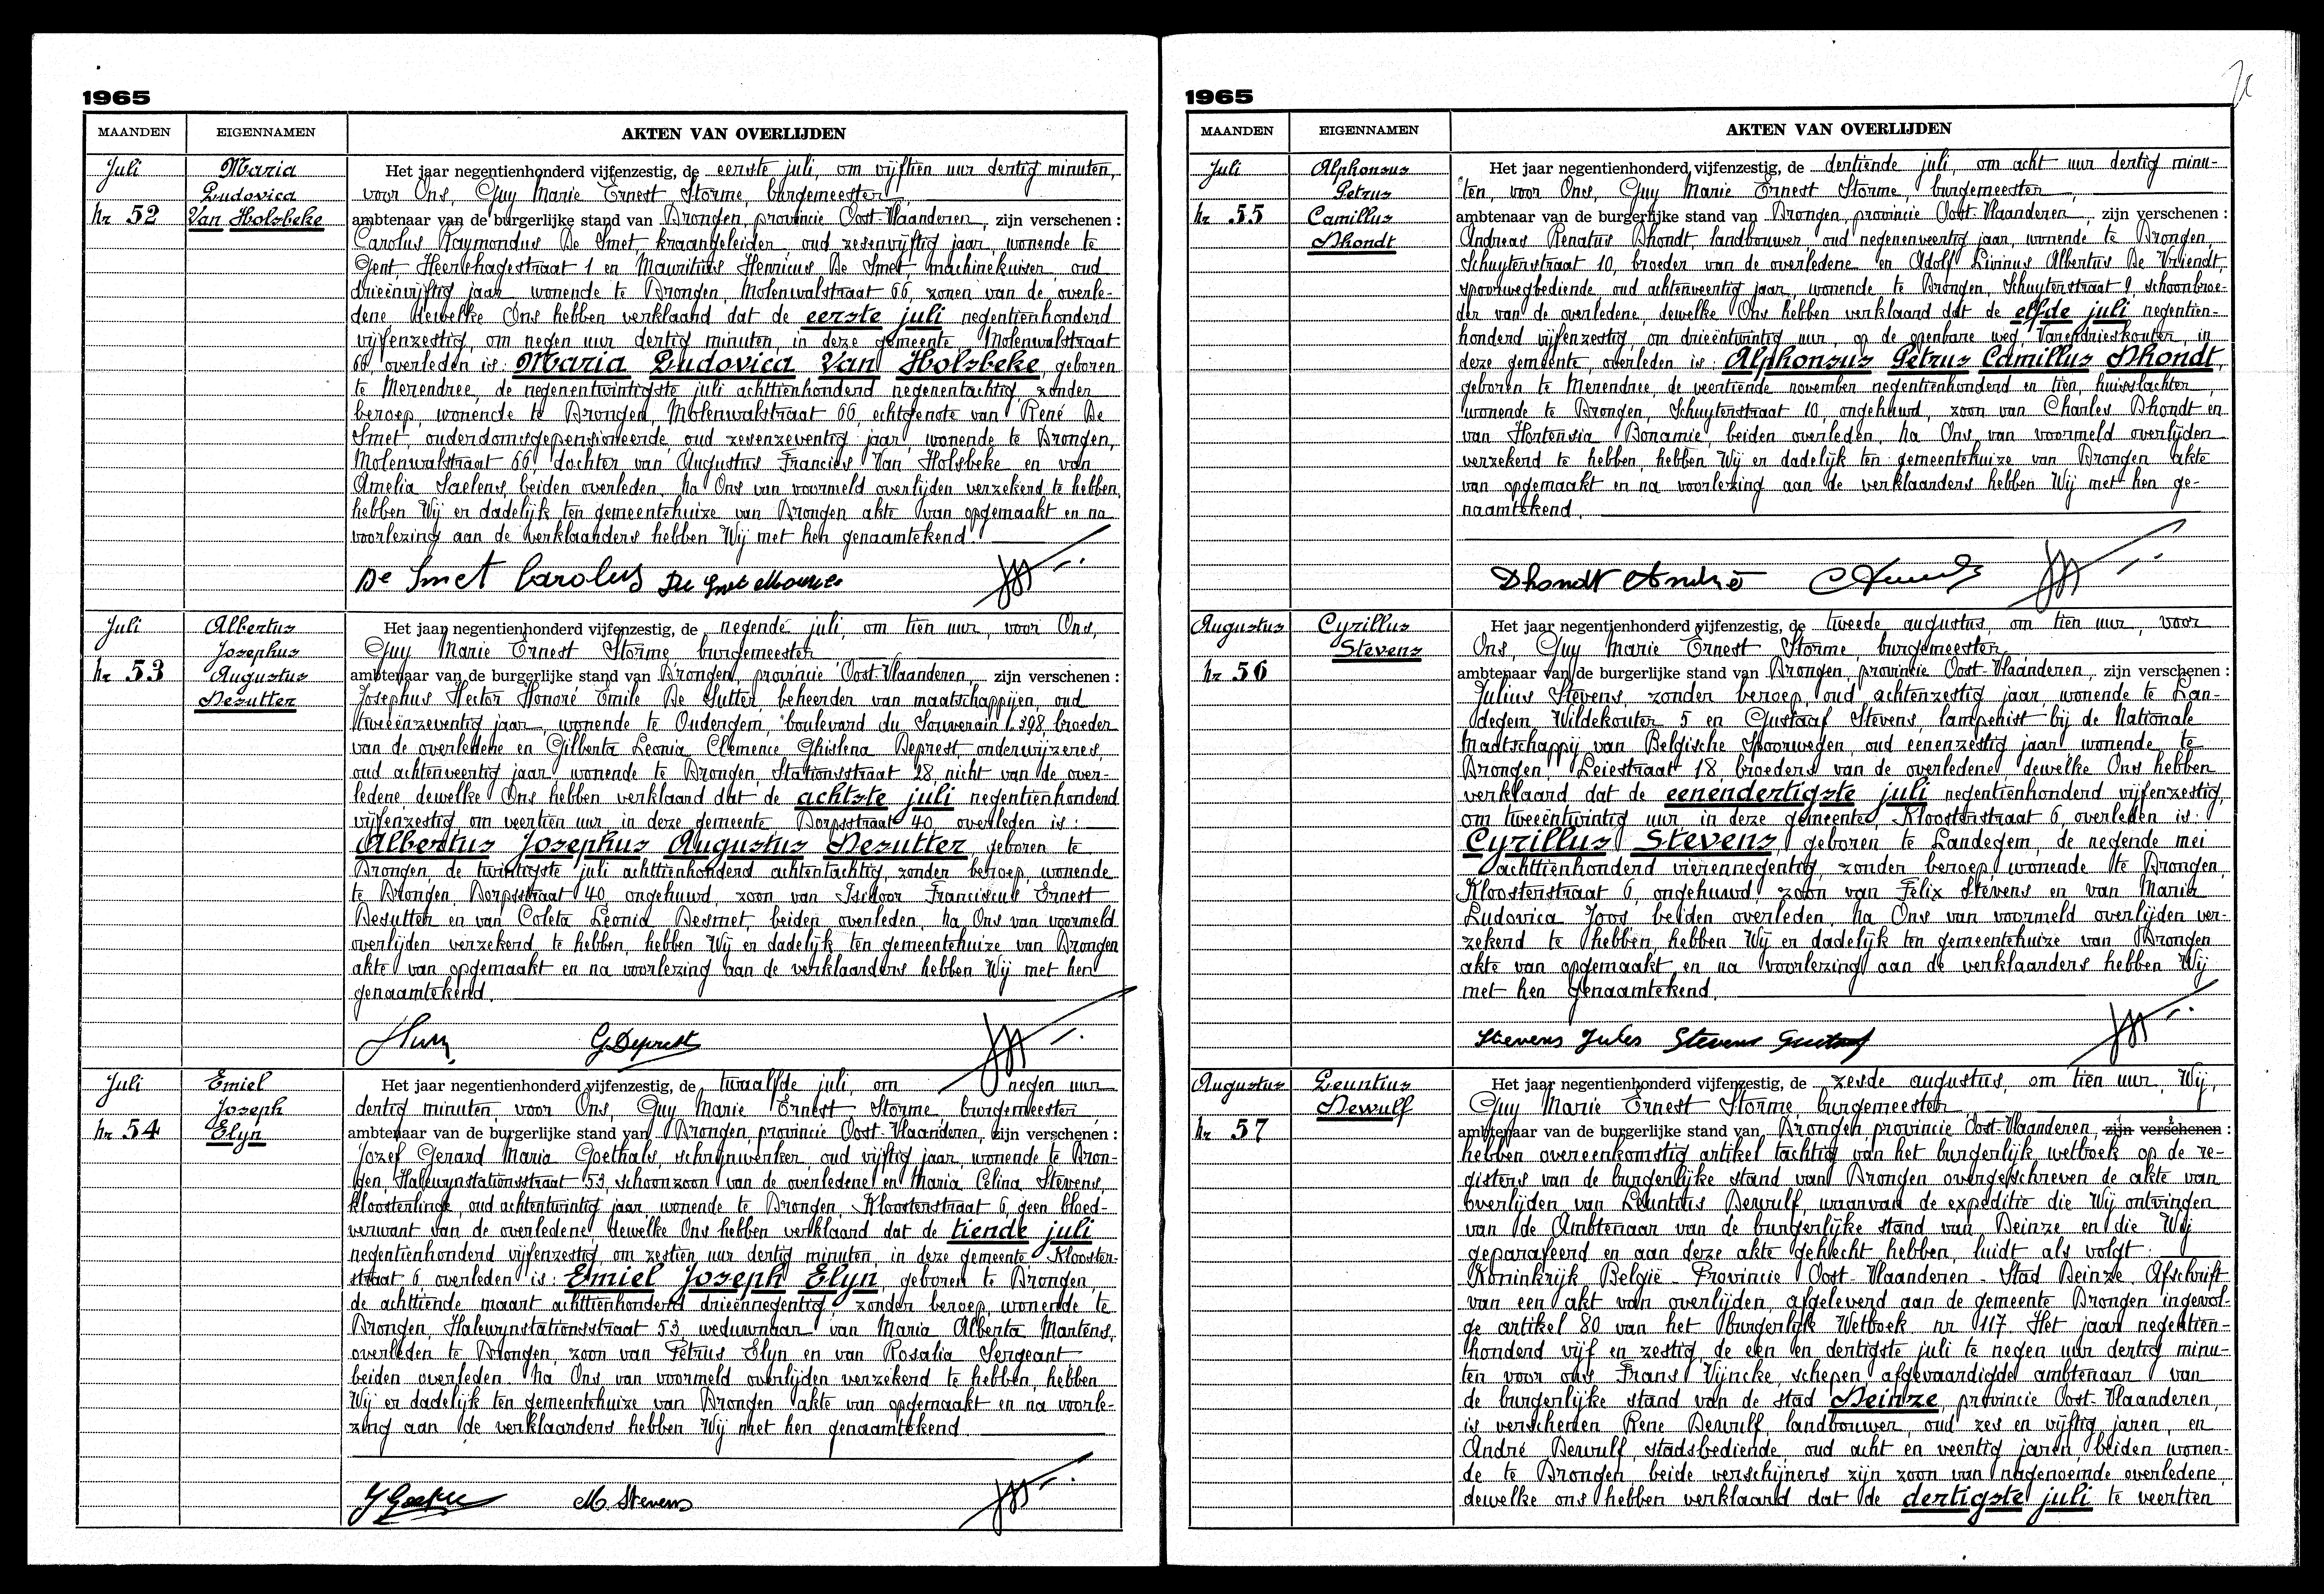 1965
MAANDEN EIGENNAMEN AKTEN VAN OVERLIJDEN
Juli
Nr 52
Maria
Ludovica
Van Holsbeke
Het jaar negentienhonderd vijfenzestig, de eerste juli, om vijftien uur dertig minuten,
voor Ons, Guy Marie Ernest Storme, burgemeester,
ambtenaar van de burgerlijke stand van Drongen, provincie Oost-Vlaanderen, zijn verschenen :
Carolus Raymondus De Smet, kraangeleider, oud zesenvijftig jaar, wonende te
Gent, Heernhagestraat 1 en Mauritius Henricus De Smet, machinekuiser, oud
drieënvijftig jaar, wonende te Drongen, Molenwalstraat 66, zonen van de overle-
dene, dewelke Ons hebben verklaard dat de eerste juli negentienhonderd
vijfenzestig, om negen uur dertig minuten, in deze gemeente, Molenwalstraat
66, overleden is: Maria Ludovica Van Holsbeke, geboren
te Merendree, de negenentwintigste juli achttienhonderd negenentachtig, zonder
beroep, wonende te Drongen, Molenwalstraat 66, echtgenote van René De
Smet, ouderdomsgepensioneerde, oud zevenzeventig jaar, wonende te Drongen,
Molenwalstraat 66, dochter van Augustus Francies Van Holsbeke en van
Amelia Saelens, beiden overleden. Na Ons van voormeld overlijden verzekerd te hebben,
hebben Wij er dadelijk ten gemeentehuize van Drongen akte van opgemaakt en na
voorlezing aan de verklaarders hebben Wij met hen genaamtekend.
De Smet Carolus De Smet Maurits
Juli
Nr 53
Albertus
Josephus
Augustus
Desutter
Het jaar negentienhonderd vijfenzestig, de negende juli, om tien uur, voor Ons,
Guy Marie Ernest Storme, burgemeester
ambtenaar van de burgerlijke stand van Drongen, provincie Oost-Vlaanderen, zijn verschenen :
Josephus Hector Honoré Emile De Sutter, beheerder van maatschappijen, oud
tweeënzeventig jaar, wonende te Oudergem, boulevard du Souverain 398, broeder
van de overledene en Gilberta Leonia Clemence Ghislena Deprest, onderwijzeres,
oud achtenveertig jaar, wonende te Drongen, Stationsstraat 28, nicht van de over-
ledene, dewelke Ons hebben verklaard dat de achtste juli negentienhonderd
vijfenzestig om veertien uur, in deze gemeente, Dorpsstraat 40, overleden is :
Albertus Josephus Augustus Desutter, geboren te
Drongen, de twintigste juli achttienhonderd achtentachtig, zonder beroep, wonende
te Drongen, Dorpsstraat 40, ongehuwd, zoon van Isidoor Franciscus Ernest
Desutter en van Coleta Leonia Desmet, beiden overleden. Na Ons van voormeld
overlijden verzekerd te hebben, hebben Wij er dadelijk ten gemeentehuize van Drongen
akte van opgemaakt en na voorlezing aan de verklaarders hebben Wij met hen
genaamtekend.
G Deprest
Juli
Nr 54
Emiel
Joseph
Elyn
Het jaar negentienhonderd vijfenzestig, de twaalfde juli, om negen uur
dertig minuten, voor Ons, Guy Marie Ernest Storme, burgemeester
ambtenaar van de burgerlijke stand van Drongen, provincie Oost-Vlaanderen, zijn verschenen :
Jozef Gerard Maria Goethals, schrijnwerker, oud vijftig jaar, wonende te Dron-
gen, Halewynstationsstraat 53, schoonzoon van de overledene en Maria Celina Stevens,
kloosterlinge, oud achtentwintig jaar, wonende te Drongen, Kloosterstraat 6, geen bloed-
verwant van de overledene, dewelke Ons hebben verklaard dat de tiende juli
negentienhonderd vijfenzestig, om zestien uur dertig minuten, in deze gemeente, Klooster-
straat 6, overleden is: Emiel Joseph Elyn, geboren te Drongen,
de achttiende maart achttienhonderd drieënnegentig, zonder beroep, wonende te
Drongen, Halewynstationsstraat 53, weduwnaar van Maria Alberta Martens,
overleden te Drongen, zoon van Petrus Elyn en van Rosalia Sergeant
beiden overleden. Na Ons van voormeld overlijden verzekerd te hebben, hebben
Wij er dadelijk ten gemeentehuize van Drongen akte van opgemaakt en na voorle-
zing aan de verklaarders hebben Wij met hen genaamtekend.
M. Stevens
1965
MAANDEN EIGENNAMEN AKTEN VAN OVERLIJDEN
Juli
Nr 55
Alphonsus
Petrus
Camillus
Dhondt
Het jaar negentienhonderd vijfenzestig, de dertiende juli, om acht uur dertig minu-
ten, voor Ons, Guy Marie Ernest Storme, burgemeester
ambtenaar van de burgerlijke stand van Drongen, provincie Oost-Vlaanderen, zijn verschenen :
Andreas Renatus Dhondt, landbouwer, oud negenenveertig jaar, wonende te Drongen,
Schuyterstraat 10, broeder van de overledene en Adolf Livinus Albertus De Vriendt,
spoorwegbediende, oud achtenveertig jaar, wonende te Drongen, Schuyterstraat 9, schoonbroe-
der van de overledene, dewelke Ons hebben verklaard dat de elfde juli negentien-
honderd vijfenzestig, om drieëntwintig uur, op de openbare weg, Varendrieskouter, in
deze gemeente, overleden is: Alphonsus Petrus Camillus Dhondt,
geboren te Merendree, de veertiende november negentienhonderd en tien, huisslachter,
wonende te Drongen, Schuyterstraat 10, ongehuwd, zoon van Charles Dhondt en
van Hortensia Bonamie, beiden overleden. Na Ons van voormeld overlijden
verzekerd te hebben, hebben Wij er dadelijk ten gemeentehuize van Drongen akte
van opgemaakt en na voorlezing aan de verklaarders hebben Wij met hen ge-
naamtekend.
Dhondt André
Augustus
Nr 56
Cyrillus
Stevens
Het jaar negentienhonderd vijfenzestig, de tweede augustus, om tien uur, voor
Ons, Guy Marie Ernest Storme, burgemeester,
ambtenaar van de burgerlijke stand van Drongen, provincie Oost-Vlaanderen, zijn verschenen :
Julius Stevens, zonder beroep, oud achtenzestig jaar, wonende te Lan-
degem, Wildekouter 5 en Gustaaf Stevens, lampenist bij de Nationale
Maatschappij van Belgische Spoorwegen, oud eenenzestig jaar, wonende te
Drongen, Leiestraat 18, broeders van de overledene, dewelke Ons hebben
verklaard dat de eenendertigste juli negentienhonderd vijfenzestig,
om tweeëntwintig uur, in deze gemeente, Kloosterstraat 6, overleden is:
Cyrillus Stevens, geboren te Landegem, de negende mei
achttienhonderd vierennegentig, zonder beroep, wonende te Drongen,
Kloosterstraat 6, ongehuwd, zoon van Felix Stevens en van Maria
Ludovica Joos, beiden overleden. Na Ons van voormeld overlijden ver-
zekerd te hebben, hebben Wij er dadelijk ten gemeentehuize van Drongen
akte van opgemaakt en na voorlezing aan de verklaarders hebben Wij
met hen genaamtekend.
Stevens Jules Stevens Gustaaf
Augustus
Nr 57
Leuntius
Dewulf
Het jaar negentienhonderd vijfenzestig, de zesde augustus, om tien uur, Wij,
Guy Marie Ernest Storme, burgemeester
ambtenaar van de burgerlijke stand van Drongen, provincie Oost-Vlaanderen, zijn verschenen :
hebben overeenkomstig artikel tachtig van het burgerlijk wetboek op de re-
gisters van de burgerlijke stand van Drongen overgeschreven de akte van
overlijden van Leuntius Dewulf, waarvan de expeditie die Wij ontvingen
van de Ambtenaar van de burgerlijke stand van Deinze en die Wij
geparafeerd en aan deze akte gehecht hebben, luidt als volgt:
Koninkrijk België - Provincie Oost-Vlaanderen - Stad Deinze. Afschrift
van een akt van overlijden, afgeleverd aan de gemeente Drongen ingevol-
ge artikel 80 van het burgerlijk Wetboek nr 117. Het jaar negentien-
honderd vijf en zestig, de een en dertigste juli te negen uur dertig minu-
ten voor ons Frans Vijncke, schepen, afgevaardigde ambtenaar van
de burgerlijke stand van de stad Deinze, provincie Oost-Vlaanderen,
is verschenen Rene Dewulf, landbouwer, oud zes en vijftig jaren, en
André Dewulf, stadsbediende, oud acht en veertig jaren, beiden wonen-
de te Drongen, beide verschijners zijn zoon van nagenoemde overledene,
dewelke ons hebben verklaard dat de dertigste juli te veertien